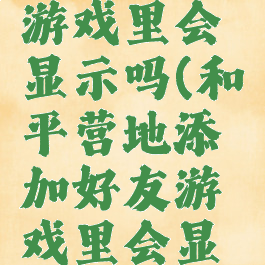 游戏里会
显示吗(和
平营地添
加好友游
戏里会显